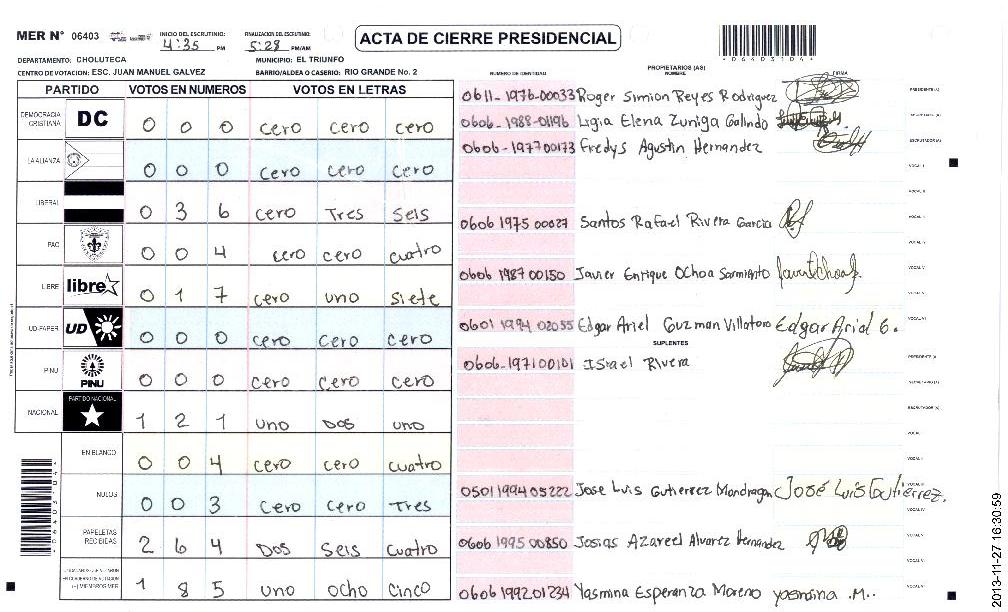 MER N° 06403 INICIO DEL ESCRUTINIO: 4:35 PM FINALIZACION DEL ESCRUTINIO: 5:28 PM/AM ACTA DE CIERRE PRESIDENCIAL
DEPARTAMENTO: CHOLUTECA MUNICIPIO: EL TRIUNFO
CENTRO DE VOTACION: ESC. JUAN MANUEL GALVEZ BARRIO/ALDEA O CASERIO: RIO GRANDE No. 2
PARTIDO VOTOS EN NUMEROS VOTOS EN LETRAS
DEMOCRACIA CRISTIANA DC 0 0 0 cero cero cero
LA ALIANZA 0 0 0 cero cero cero
LIBERAL 0 3 6 cero Tres Seis
PAC 0 0 4 cero cero cuatro
LIBRE libre 0 1 7 cero uno siete
UD-FAPER UD 0 0 0 cero cero cero
PINU PINU 0 0 0 cero cero cero
NACIONAL PARTIDO NACIONAL 1 2 1 uno Dos uno
EN BLANCO 0 0 4 cero cero cuatro
NULOS 0 0 3 cero cero Tres
PAPELETAS RECIBIDAS 2 6 4 Dos Seis cuatro
1 8 5 uno ocho cinco
PROPIETARIOS (AS)
NUMERO DE IDENTIDAD NOMBRE FIRMA
0611-1976-00033 Roger Simion Reyes Rodriguez PRESIDENTE (A)
0606-1988-01196 Ligia Elena Zuniga Galindo SECRETARIO (A)
0606-197700173 Fredys Agustin Hernandez ESCRUTADOR (A)
VOCAL I
VOCAL II
0606 1975 00027 Santos Rafael Rivera Garcia VOCAL III
VOCAL IV
0606 1987 00150 Javier Enrique Ochoa Sarmiento VOCAL V
0601 1994 02055 Edgar Ariel Guzman Villatoro Edgar Ariel G.
SUPLENTES
0606-197100101 Israel Rivera PRESIDENTE (A)
SECRETARIO (A)
ESCRUTADOR (A)
VOCAL I
VOCAL II
0501199405222 Jose Luis Gutierrez Mondragon José Luis Gutiérrez.
0606 1995 00850 Josias Azareel Alvarez Hernandez
0606 199201234 Yasmina Esperanza Moreno yasmina .M..
2013-11-27 16:30:59